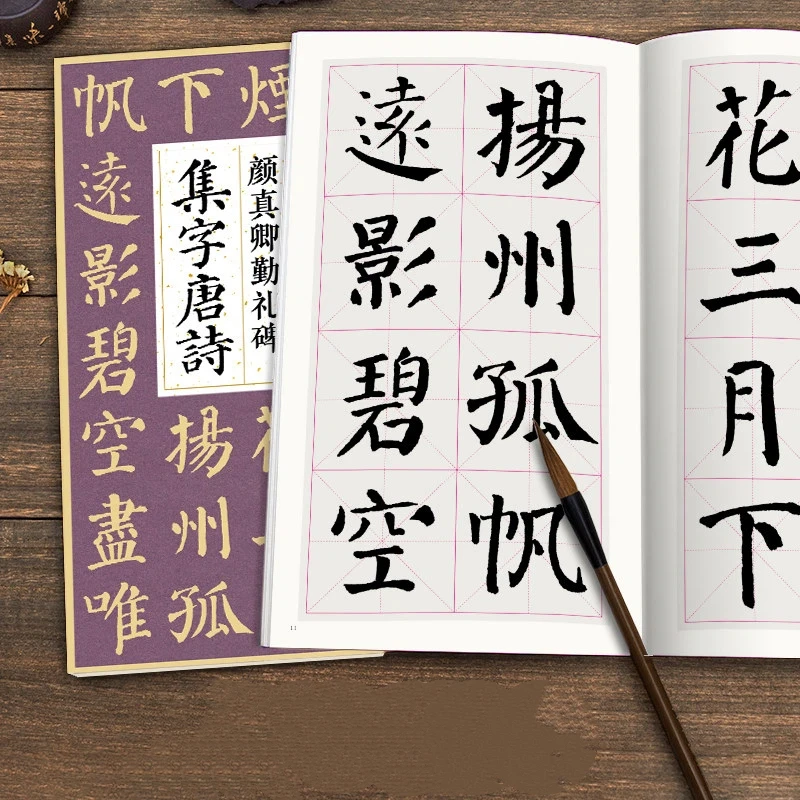 颜真卿勤礼碑
集字唐詩
帆下煙
遠影碧空盡唯
揚州孤
花三月下
揚州孤帆
遠影碧空
11